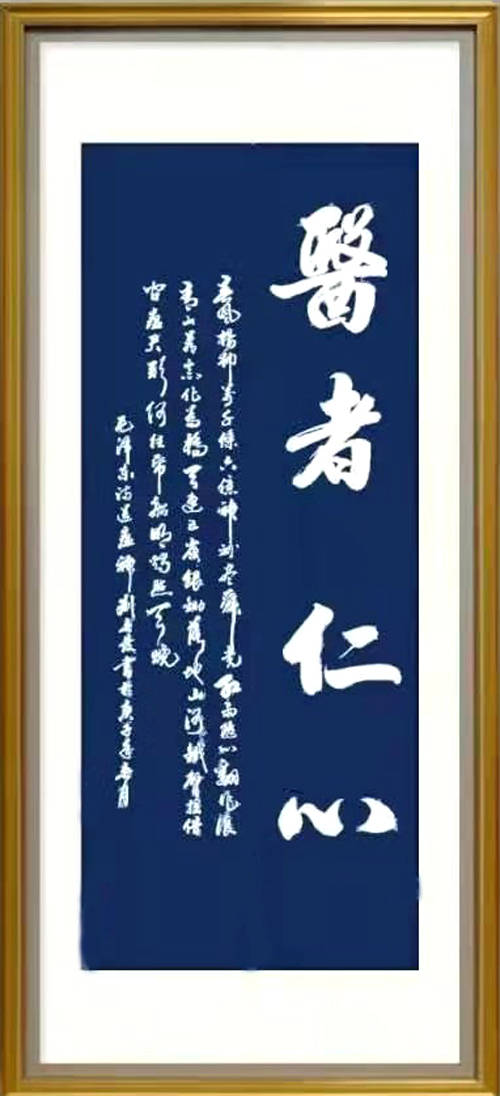 醫者仁心
春風楊柳萬千條六億神州盡舜堯紅雨隨心翻作浪
青山着意化為橋天連五嶺銀鋤落地山河鐵臂搖借
問瘟君欲何往紙船明燭照天燒
毛澤東詩送瘟神 書於庚子年春月